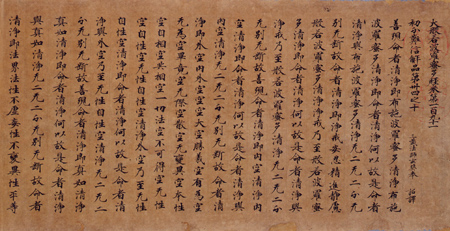 大般若波羅蜜多經卷第一百九十一
初分難信解品第卅四之十
三藏法師玄奘奉 詔譯
善現命者清淨即布施波羅蜜多清淨布施
波羅蜜多清淨即命者清淨何以故是命者
清淨與布施波羅蜜多清淨无二无二分无
別无斷故命者清淨即淨戒安忍精進靜慮
般若波羅蜜多清淨淨戒乃至般若波羅蜜
多清淨即命者清淨何以故是命者清淨與
淨戒乃至般若波羅蜜多清淨无二无二分
无別无斷故善現命者清淨即內空清淨內
空清淨即命者清淨何以故是命者清淨與
內空清淨无二无二分无別无斷故命者清
淨即外空內外空空空大空勝義空有為空
无為空畢竟空无際空散空无變異空本性
空自相空共相空一切法空不可得空无性
空自性空无性自性空清淨外空乃至无性
自性空清淨即命者清淨何以故是命者清
淨與外空乃至无性自性空清淨无二无二
分无別无斷故善現命者清淨即真如清淨
真如清淨即命者清淨何以故是命者清淨
與真如清淨无二无二分无別无斷故命者
清淨即法界法性不虛妄性不變異性平等